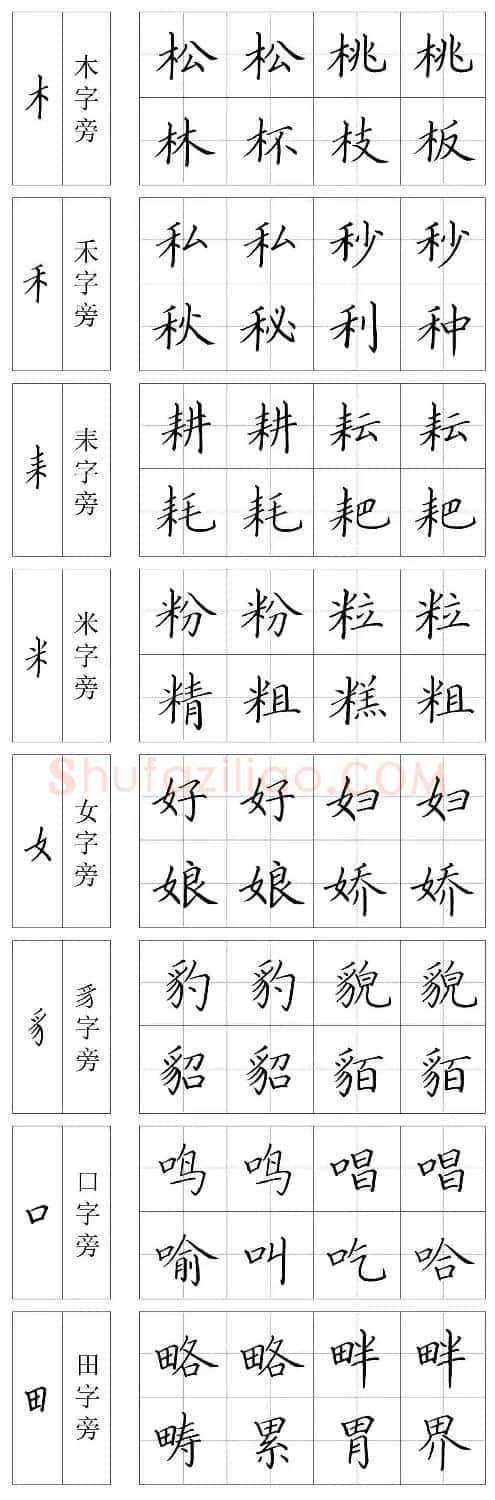 木 木字旁
松 松 桃 桃
林 杯 枝 板
禾 禾字旁
私 私 秒 秒
秋 秘 利 种
耒 耒字旁
耕 耕 耘 耘
耗 耗 耙 耙
米 米字旁
粉 粉 粒 粒
精 粗 糕 粗
Shufaziliao.COM
女 女字旁
好 好 妇 妇
娘 娘 娇 娇
豸 豸字旁
豹 豹 貌 貌
貂 貂 貊 貊
口 口字旁
鸣 鸣 唱 唱
喻 叫 吃 哈
田 田字旁
略 略 畔 畔
畴 累 胃 界